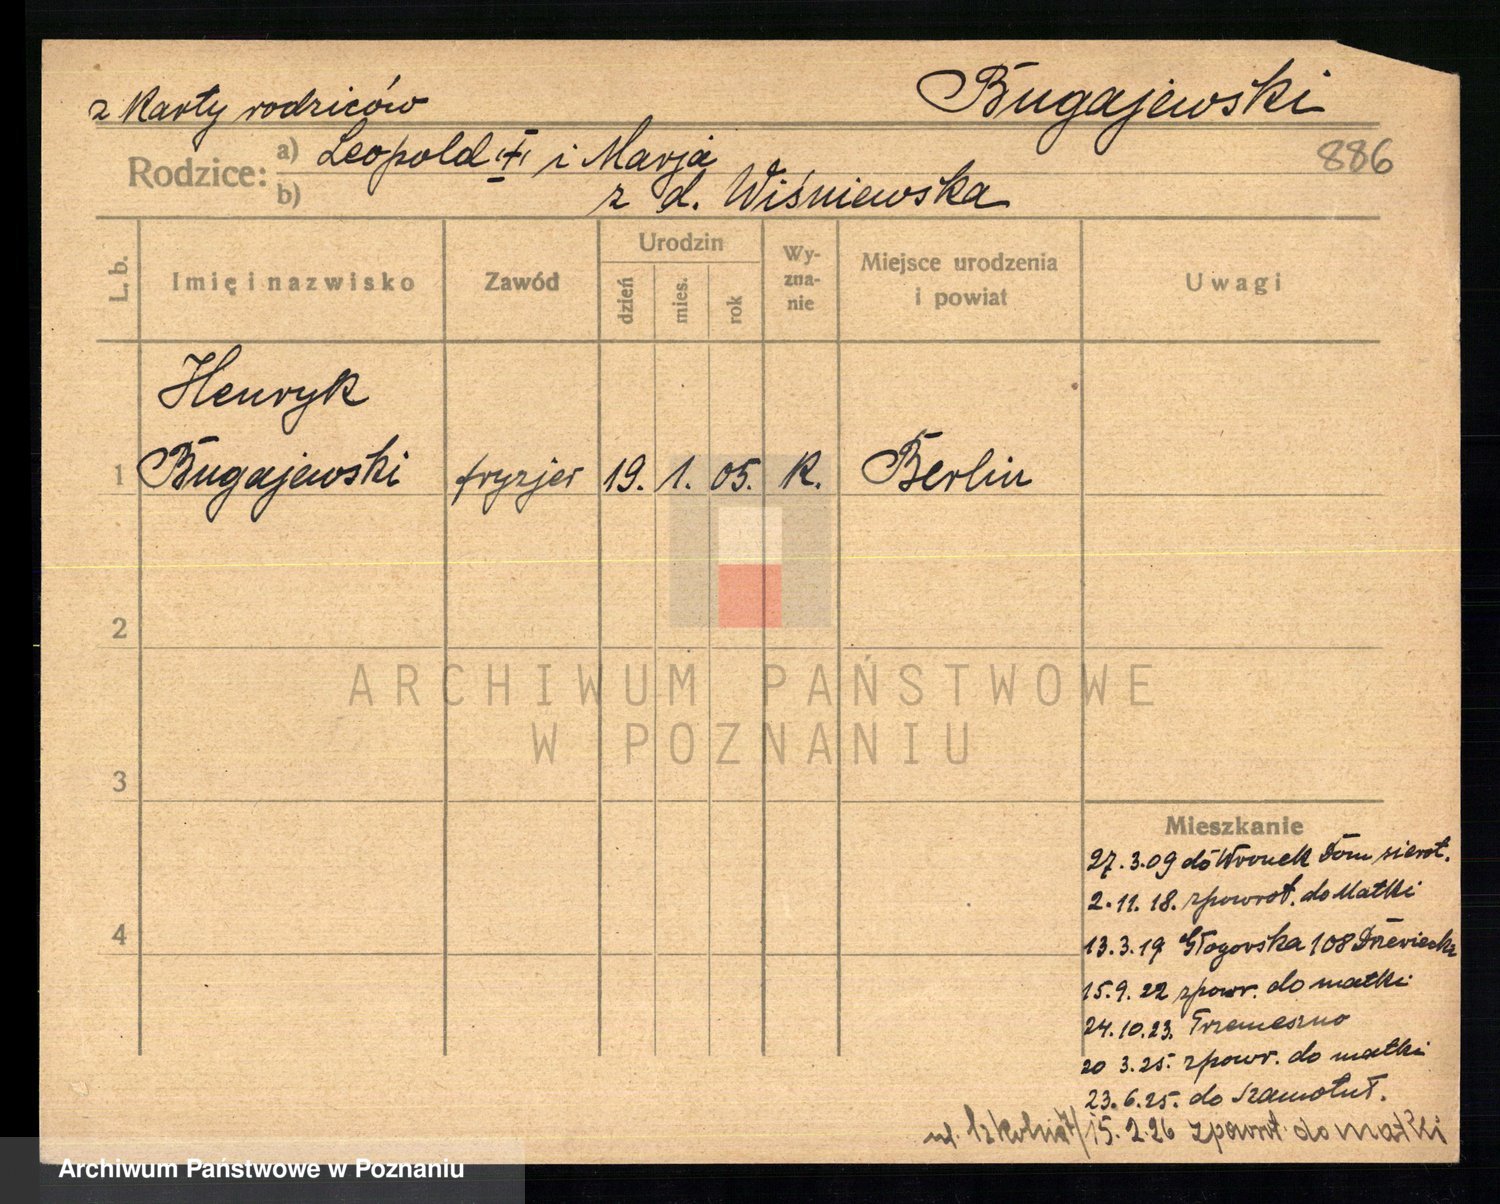 z Karty rodziców
Bugajewski
886
Rodzice:
a) Leopold (+) i Marja
b) z d. Wiśniewska
L. b.
Imię i nazwisko
Zawód
Urodzin
dzień
mies.
rok
Wy-
zna-
nie
Miejsce urodzenia
i powiat
Uwagi
Henryk
1 Bugajewski fryzjer 19. 1. 05. K. Berlin
2
3
4
ARCHIWUM PAŃSTWOWE
W POZNANIU
Mieszkanie
27.3.09 do Wronek Dom sierot.
2.11.18. zpowrot. do Matki
13.3.19 Głogowska 108
15.9.22 zpowr. do matki
24.10.23. Trzemeszno
20 3.25. zpowr. do matki
23.6.25. do Szamotuł.
15.2.26 zpowrot do matki
Archiwum Państwowe w Poznaniu